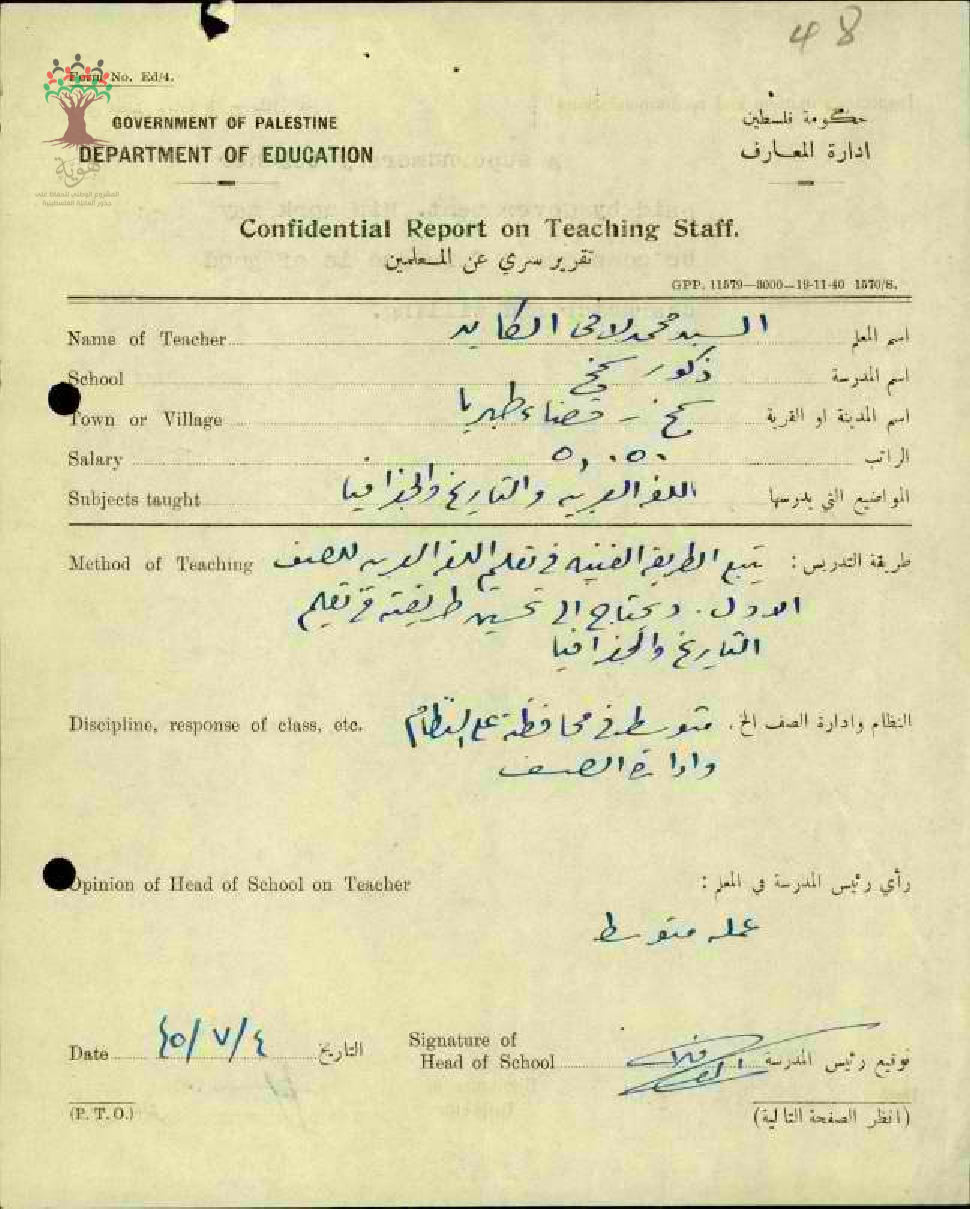 48
Form No. Ed/4.
هوية
المشروع الوطني للحفاظ على
جذور العائلة الفلسطينية
GOVERNMENT OF PALESTINE
DEPARTMENT OF EDUCATION
حكومة فلسطين
ادارة المعارف
Confidential Report on Teaching Staff.
تقرير سري عن المعلمين
GPP. 11579—3000—19-11-40 1570/S.
Name of Teacher السيد محمد لافي الكايد اسم المعلم
School ذكور سمخ اسم المدرسة
Town or Village سمخ – قضاء طبريا اسم المدينة او القرية
Salary ٥,٠٥٠ الراتب
Subjects taught اللغة العربية والتاريخ والجغرافيا المواضيع التي يدرسها
Method of Teaching يتبع الطريقة الفنية في تعليم اللغة العربية للصف طريقة التدريس :
الاول . ويحتاج الى تحسين طريقته في تعليم
التاريخ والجغرافيا
Discipline, response of class, etc. متوسط في محافظة على النظام النظام وادارة الصف الخ .
وادارة الصف
Opinion of Head of School on Teacher رأي رئيس المدرسة في المعلم :
عمله متوسط
Date ٤٥/٧/٤ التاريخ
Signature of
Head of School توقيع رئيس المدرسة
(P. T. O.) (انظر الصفحة التالية)